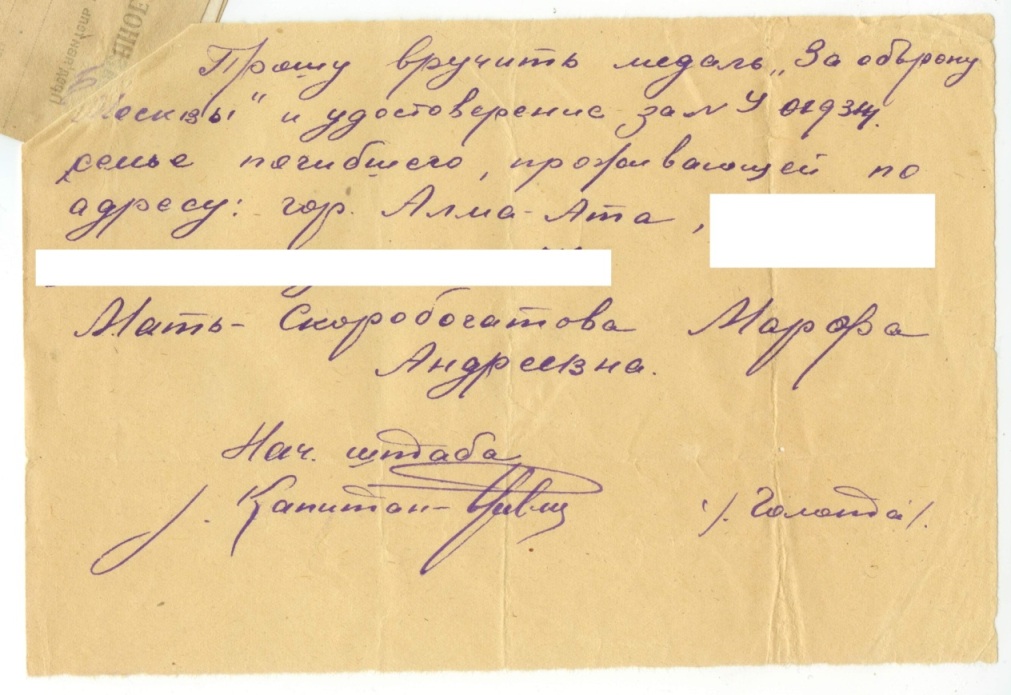 ННОЕ
Прошу вручить медаль „За оборону
Москвы" и удостоверение за № У
семье погибшего, проживающей по
адресу: гор. Алма-Ата,
Мать - Скоробогатова Марфа
Андреевна.
Нач. штаба
Капитан-